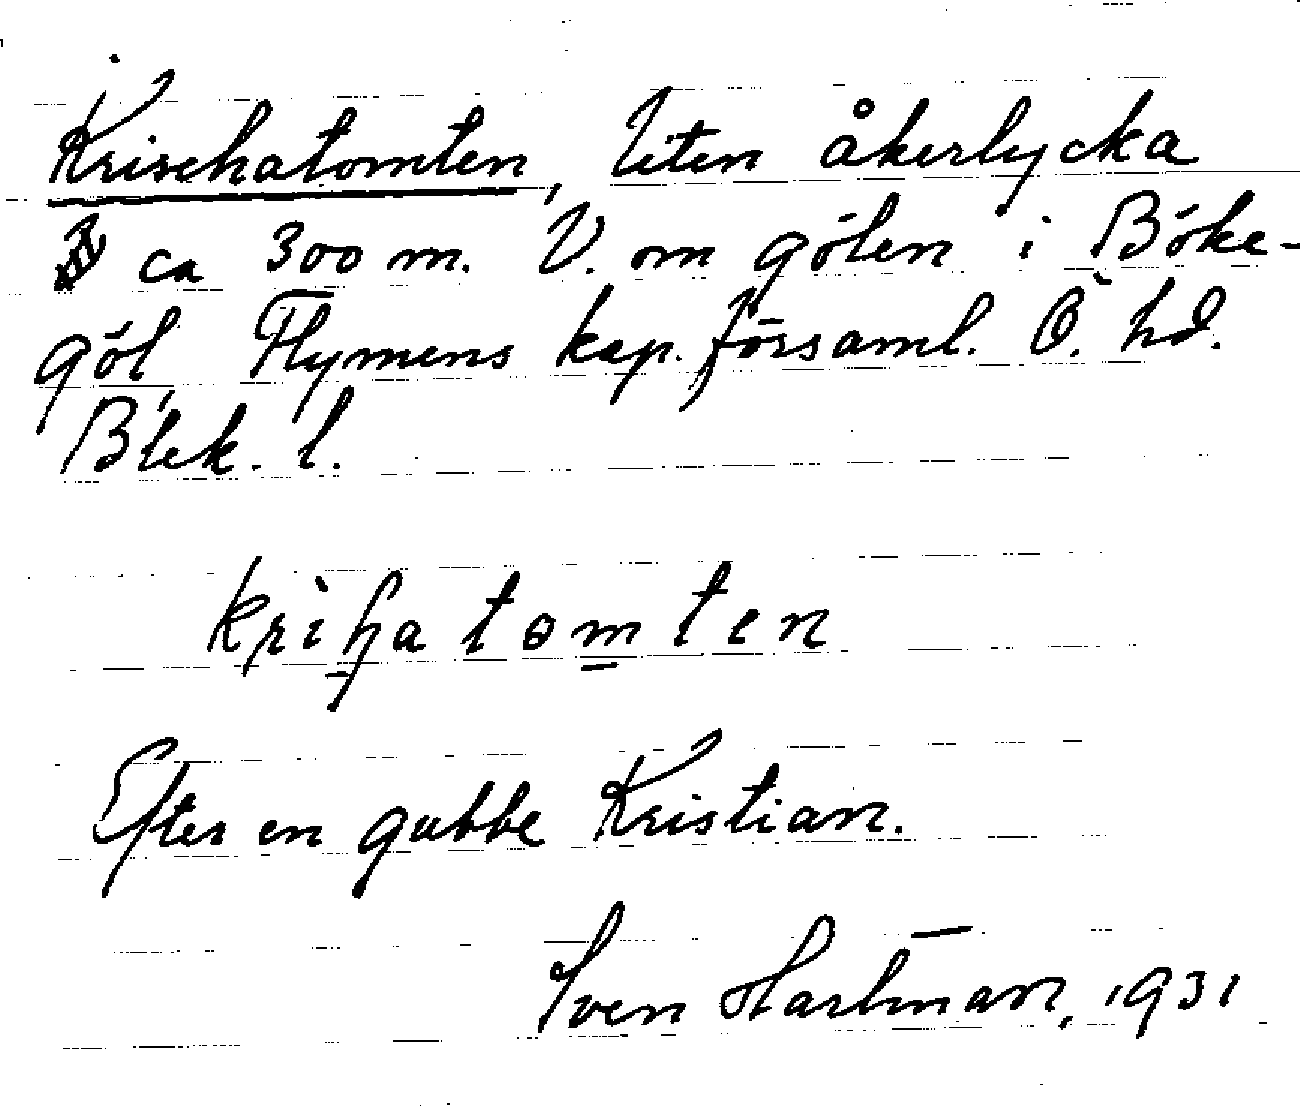 Krischatomten, liten åkerlycka
ca 300 m. V. om gölen i Böke-
göl, Flymens kap. församl. Ö. hd.
Blek. l.
kriʃatomten
Efter en gubbe Kristian.
Sven Hartman, 1931